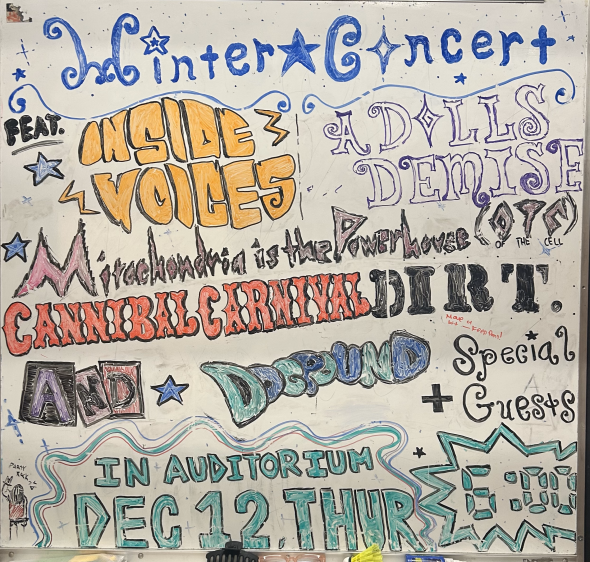 Winter Concert
FEAT.
INSIDE
VOICES
A DOLLS
DEMISE
Mitochondria is the Powerhouse (OTC)
OF THE CELL
CANNIBAL CARNIVAL DIRT.
AND DOGPOUND
+ Special
Guests
IN AUDITORIUM
DEC 12 THUR
6:00